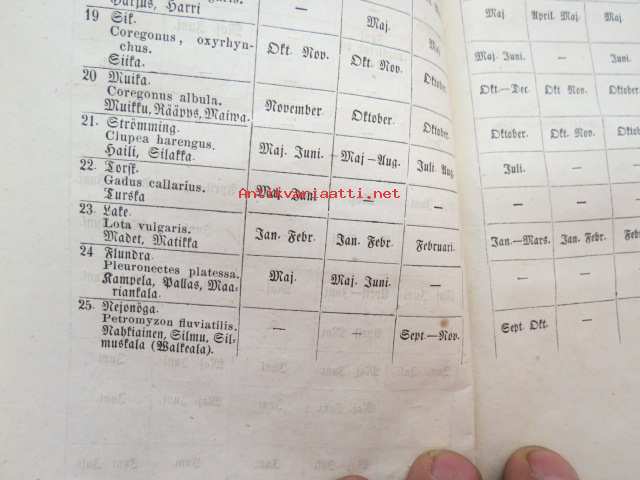 Harjus, Harri — Maj. Maj April. Maj. Maj
19 Sik.
Coregonus, oxyrhyn-
chus. Okt. Nov. Okt. Nov. Oktober. Maj. Juni. — Juni.
Siika.
20 Muika.
Coregonus albula. November. Oktober. Oktober. Okt.—Dec. Okt Nov. Oktober.
Muikku, Rääpys, Maiwa.
21. Strömming.
Clupea harengus. Maj. Juni. Maj—Aug. Juli Aug. Oktober. Okt. Nov. Oktober.
Haili, Silakka.
22. Torsk. Juli. — —
Gadus callarius. Maj. Juni — —
Antikvariaatti.net
Turska
23. Lake.
Lota vulgaris. Jan. Febr. Jan. Febr. Februari. Jan.—Mars. Jan. Febr. Febr
Madet, Matikka
24 Flundra.
Pleuronectes platessa. Maj. Maj. Juni. — — — —
Kampela, Pallas, Maa-
riankala.
25. Nejonöga.
Petromyzon fluviatilis. — — Sept.—Nov. Sept. Okt. — —
Nahkiainen, Silmu, Sil-
muskala (Walkeala).